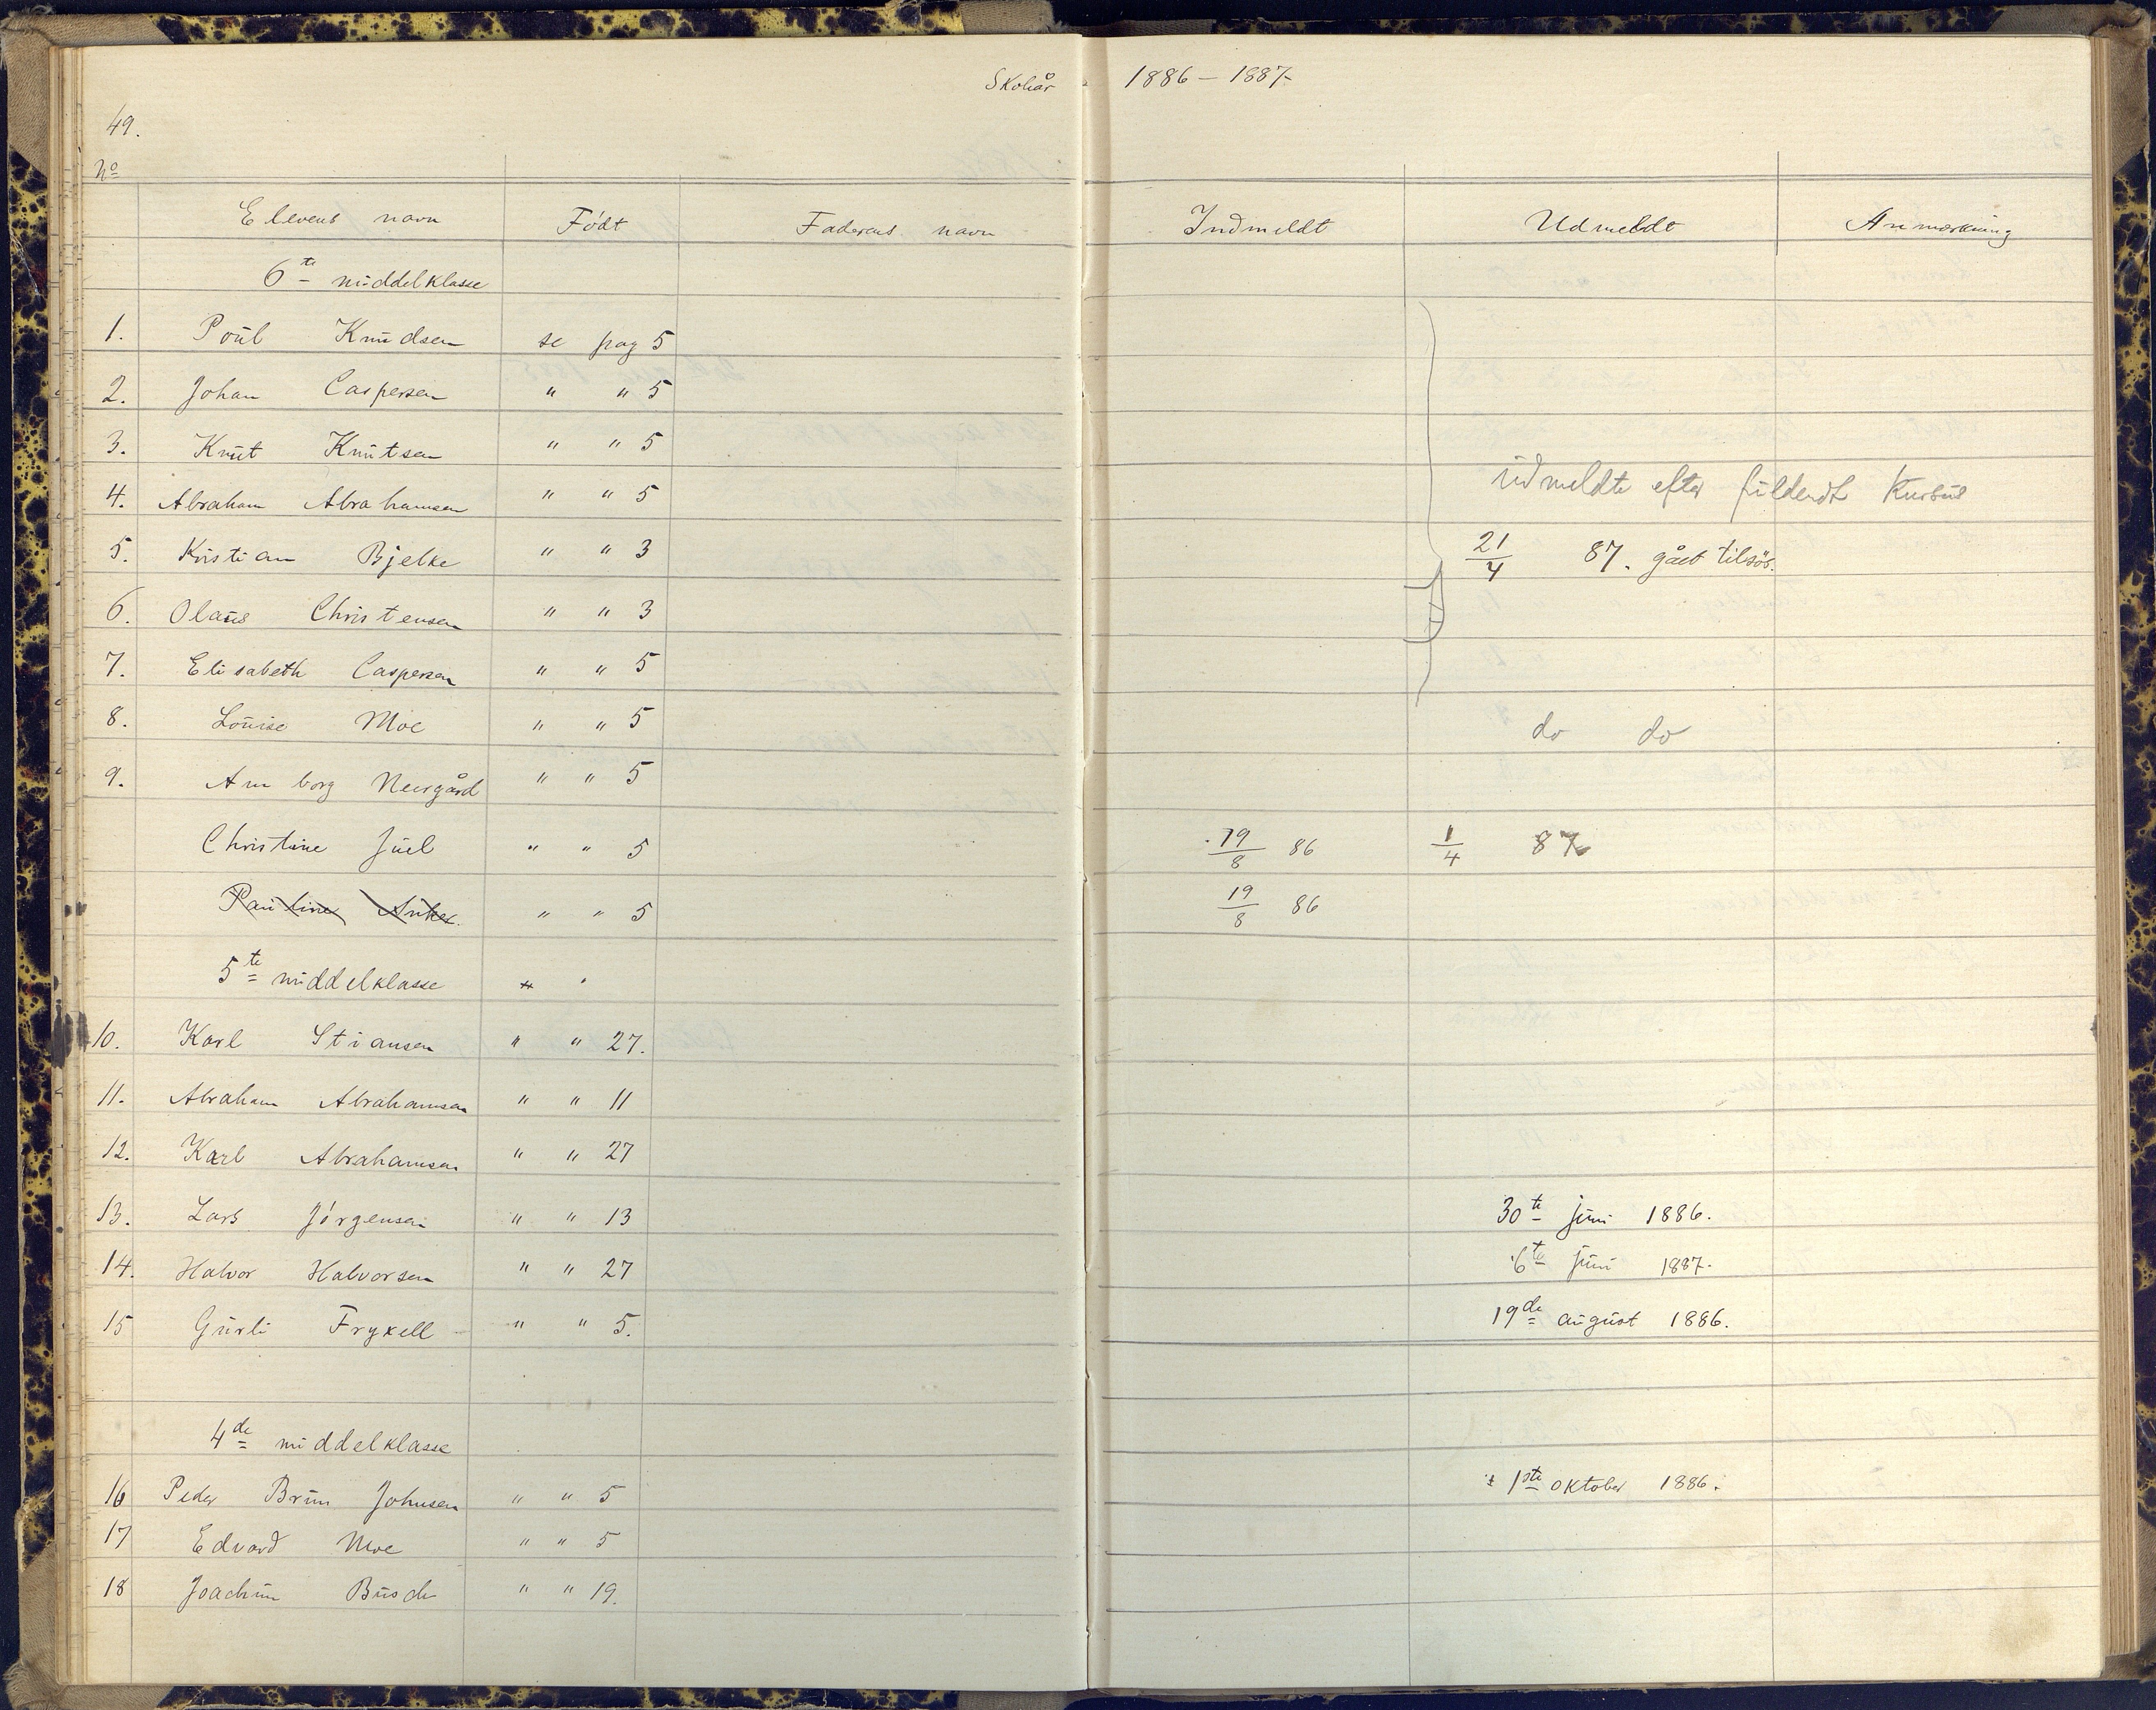 Skoleår 1886 – 1887.
49.
No
Elevens navn Födt Faderens navn Indmeldt Udmeldt Anmærkning
6te middelklasse
1. Poul Knudsen se pag 5
2. Johan Caspersen " " 5
3. Knut Knutsen " " 5
udmeldte efter fuldendt Kursus
4. Abraham Abrahamsen " " 5
5. Kristian Bjelke " " 3 21/4 87. gået tilsøs.
6. Olaus Christensen " " 3
7. Elisabeth Caspersen " " 5
8. Louise Moe " " 5 do do
9. Annborg Neergård " " 5
Christine Juel " " 5 19/8 86 1/4 87
Pauline Anker " " 5 19/8 86
5te middelklasse " "
10. Karl Stiansen " " 27.
11. Abraham Abrahamsen " " 11
12. Karl Abrahamsen " " 27
13. Lars Jörgensen " " 13 30te juni 1886.
14. Halvor Halvorsen " " 27 6te juni 1887.
15 Gurli Frykell " " 5. 19de august 1886.
4de middelklasse
16 Peder Brun Johnsen " " 5 1ste oktober 1886.
17 Edvard Moe " " 5
18 Joachim Busch " " 19.